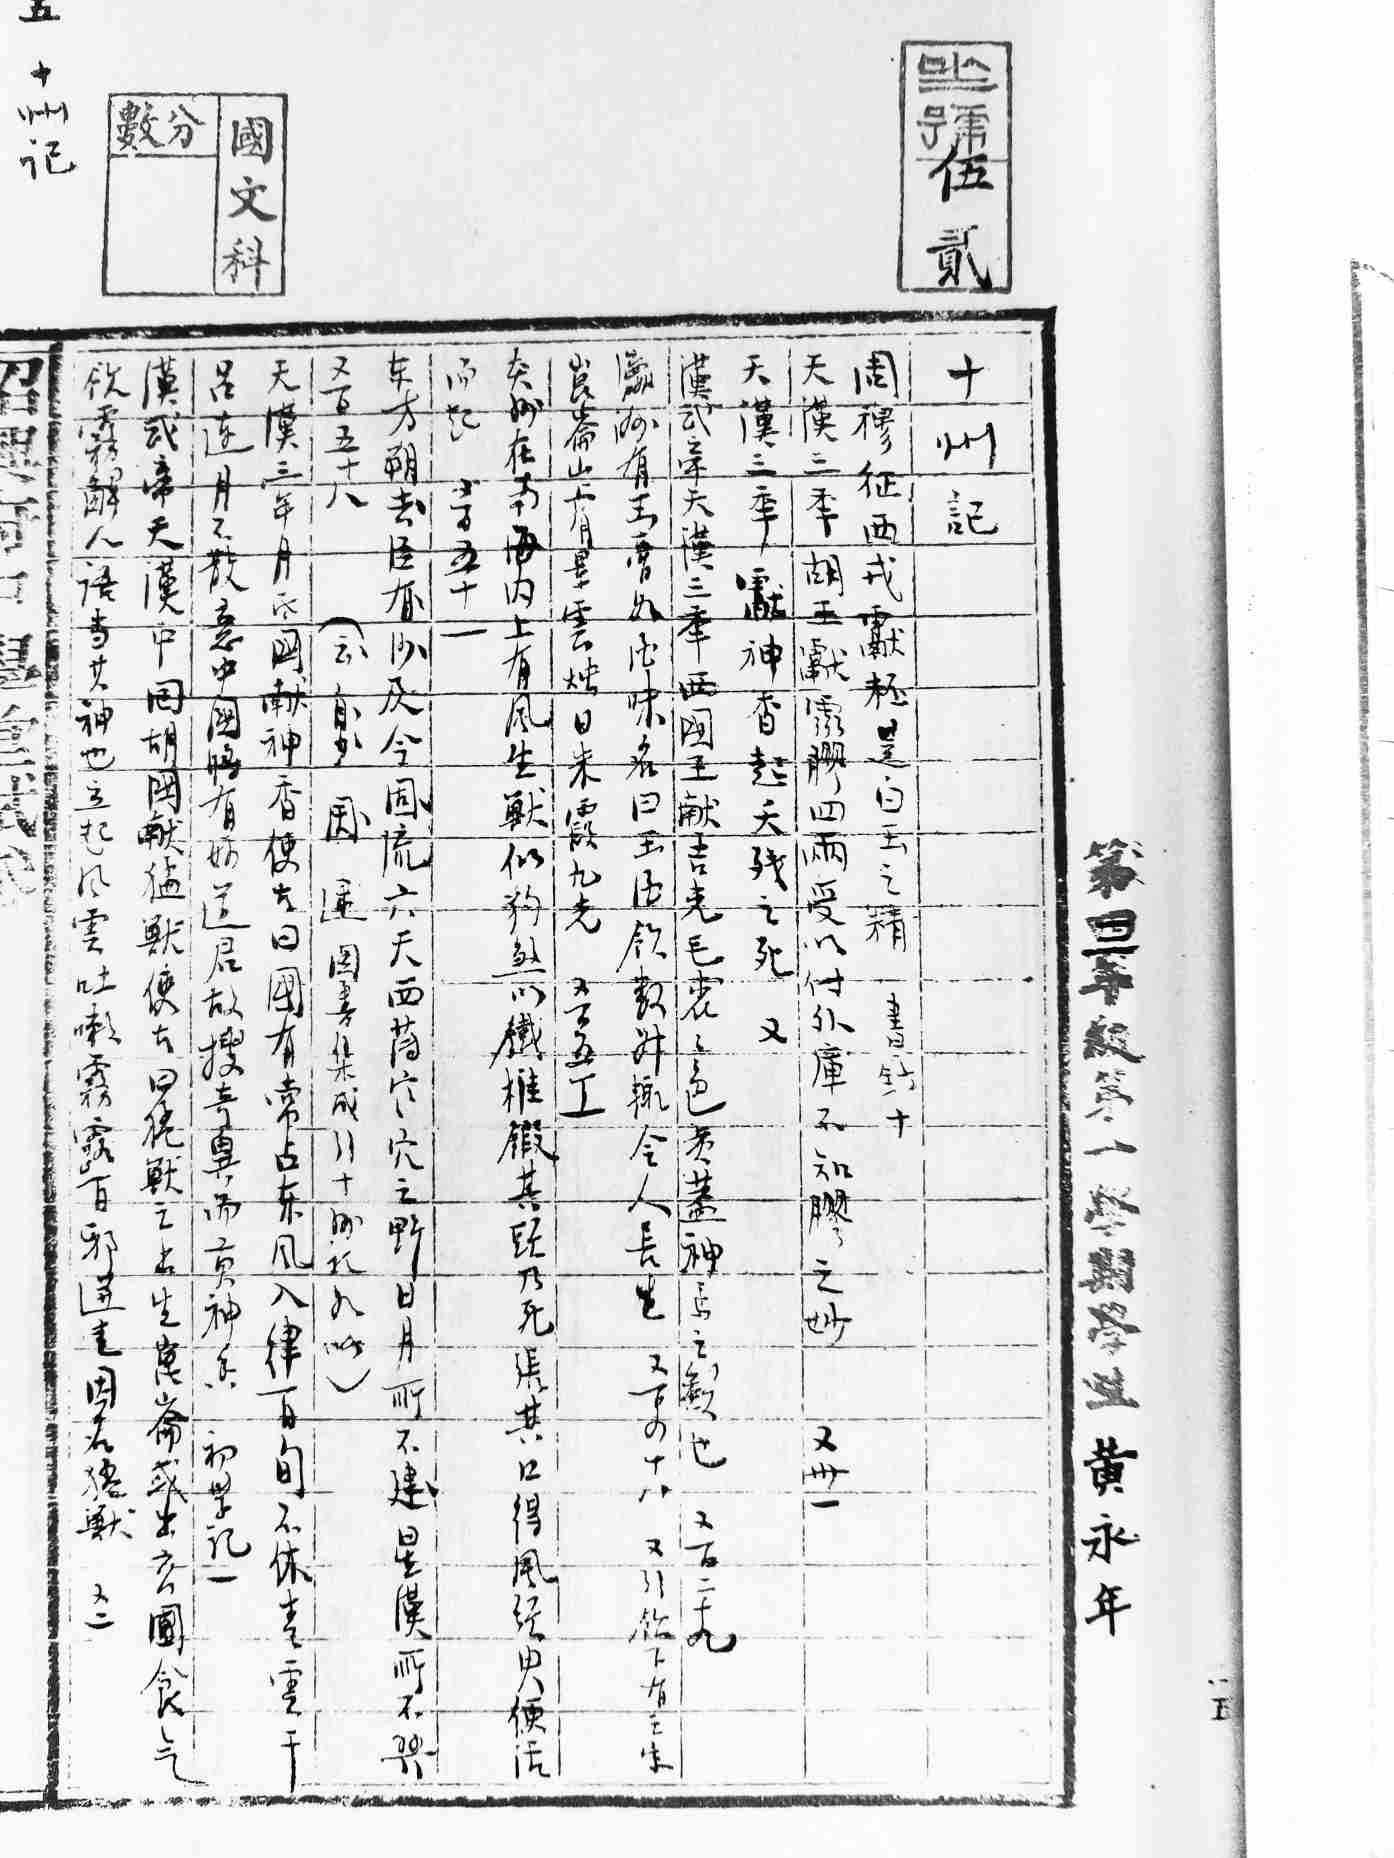 坐號
伍貳
國文科
分數
五 十州記
第四年級第一學期學生 黃永年
十州記
周穆征西戎獻杯是白玉之精 書鈔十
天漢三年胡王獻靈膠四兩受以付外庫不知膠之妙 又卅一
天漢三年獻神香起夭殘之死 又
漢武帝天漢三年西國王獻吉光毛裘色黃蓋神馬之類也 又百二十九
瀛洲有玉膏如酒味名曰玉酒飲數升輒令人長生 又百四十八 又引飲下有之字
崑崙山有景雲燭日朱霞九光 又百五一
炎洲在南海內上有風生獸似豹煞以鐵椎鍛其頭乃死張其口得風須臾便活
而起
東方朔去臣有以及今周流六天西薄穴之野日月所不建星漢所不與
又百五十八
天漢三年月氏國獻神香使者曰國有常占東風入律百旬不休青雲干
呂連月不散意中國將有好道君故搜奇異而貢神香 初學記一
漢武帝天漢中 胡國獻猛獸使者曰猛獸之出生崑崙或出玄圃食气
飲露解人語當其神也立起風雲吐嗽霧露百邪迸走因名猛獸 又二